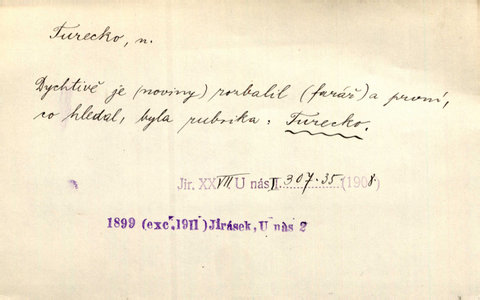 Turecko, n.
Dychtivě je (noviny) rozbalil (farář) a první,
co hledal, byla rubrika: Turecko.
Jir. XXVII U nás II. 307.35 (1908)
1899 (exc. 1911) Jirásek, U nás 2